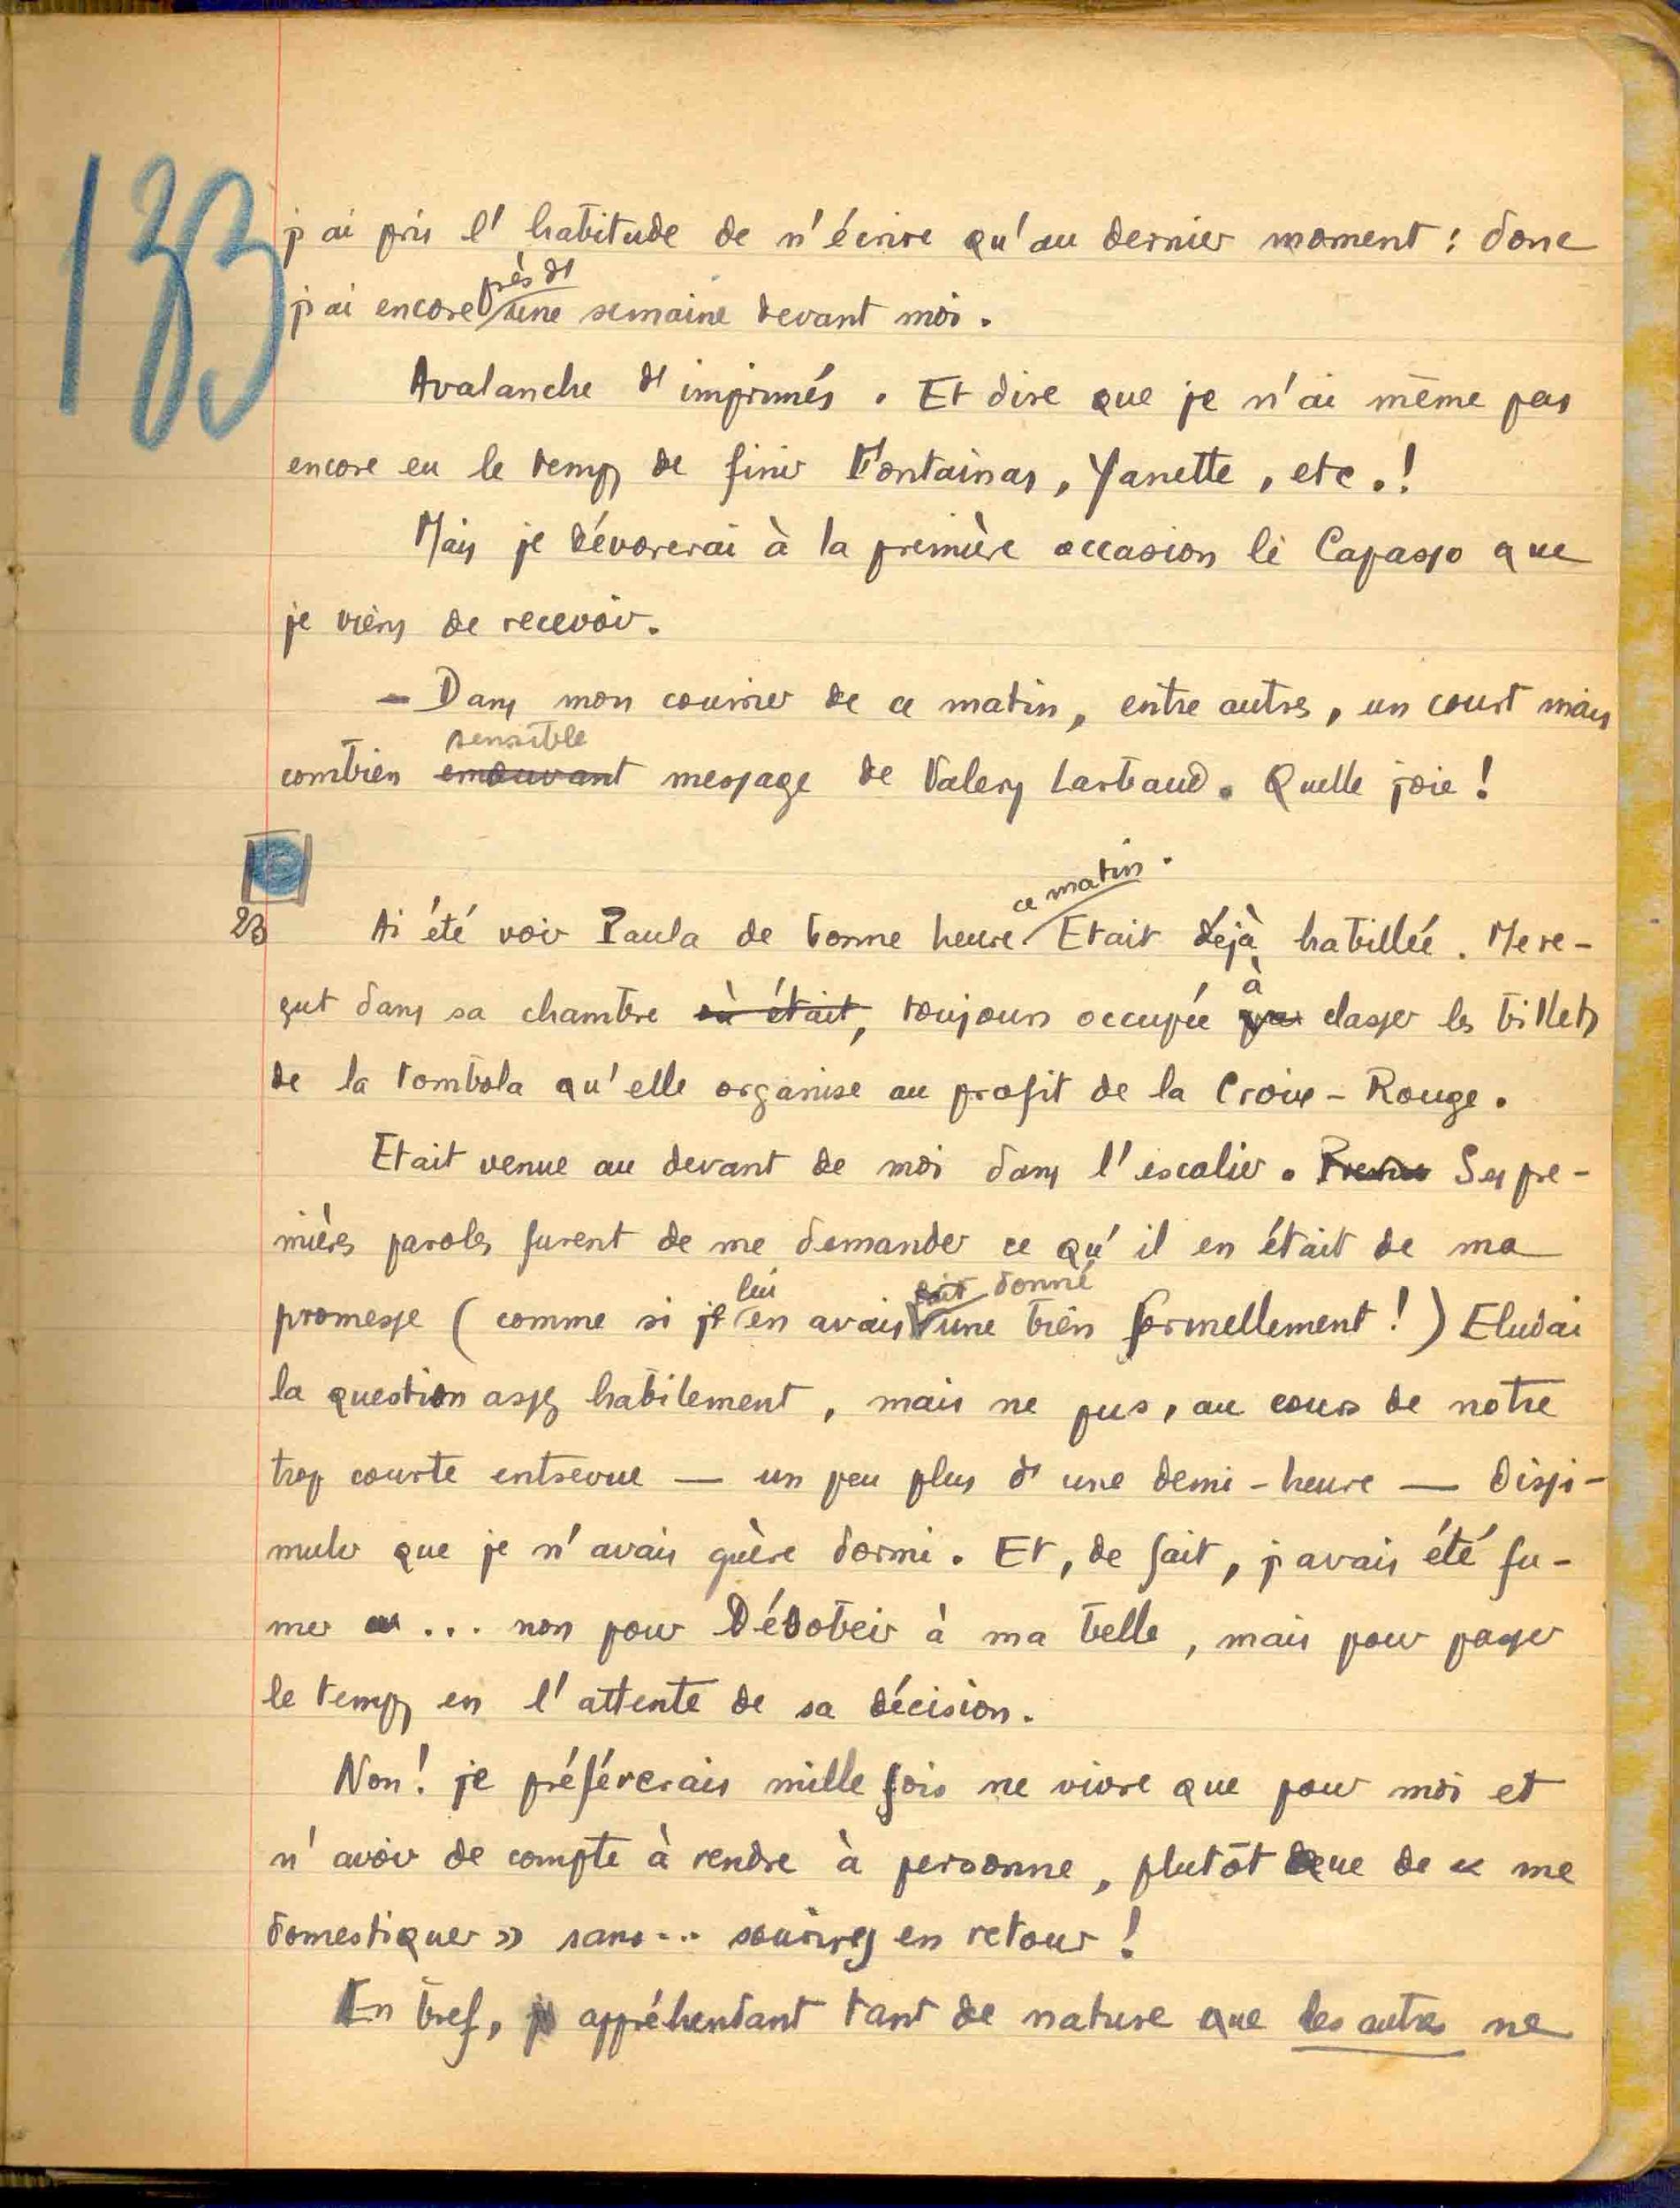 133
j'ai pris l'habitude de n'écrire qu'au dernier moment : donc
près d'
j'ai encore une semaine devant moi.
Avalanche d'imprimés. Et dire que je n'ai même pas
encore eu le temps de finir Fontainas, Yanette, etc.!
Mais je dévorerai à la première occasion le Capasso que
je viens de recevoir.
– Dans mon courrier de ce matin, entre autres, un court mais
sensible
combien émouvant message de Valery Larbaud. Quelle joie !
ce matin.
23 Ai été voir Paula de bonne heure. Etait déjà habillée. Me re-
à
çut dans sa chambre où était, toujours occupée classer les billets
de la tombola qu'elle organise au profit de la Croix-Rouge.
Etait venue au devant de moi dans l'escalier. Ses pre-
mières paroles furent de me demander ce qu'il en était de ma
lui fait donné
promesse (comme si je en avais une bien formellement !) Eludai
la question assez habilement, mais ne pus, au cours de notre
trop courte entrevue — un peu plus d'une demi-heure — dissi-
muler que je n'avais guère dormi. Et, de fait, j'avais été fu-
mer ... non pour Désobéir à ma belle, mais pour passer
le temps en l'attente de sa décision.
Non ! je préférerais mille fois ne vivre que pour moi et
n'avoir de compte à rendre à personne, plutôt que de « me
domestiquer » sans... sourires en retour !
En bref, appréhendant tant de nature que les autres ne